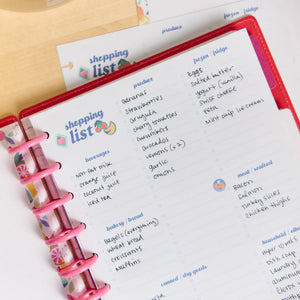 shopping
list
produce
frozen / fridge
shopping
list
produce
bananas
strawberries
arugula
cherry tomatoes
cucumbers
avocados
lemons (x2)
garlic
onions
frozen / fridge
Eggs
salted butter
yogurt (vanilla)
swiss cheese
feta
Mint chip ice cream
beverages
non-fat milk
orange juice
coconut juice
iced tea
meat / seafood
Bacon
Salmon
turkey slices
chicken thighs
bakery / bread
Bagels (everything)
wheat bread
croissants
muffins
canned / dry goods
household
paper towels
Dish soap